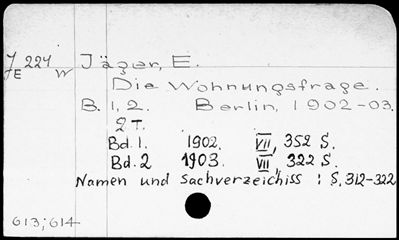 J 224 W Jäger, E.
E
Die Wohnungsfrage.
B. 1, 2. Berlin, 1902-03.
2 T.
Bd. 1. 1902. VII, 352 S.
Bd. 2 1903. VII, 322 S.
Namen und Sachverzeichiss : S. 312-322
613; 614